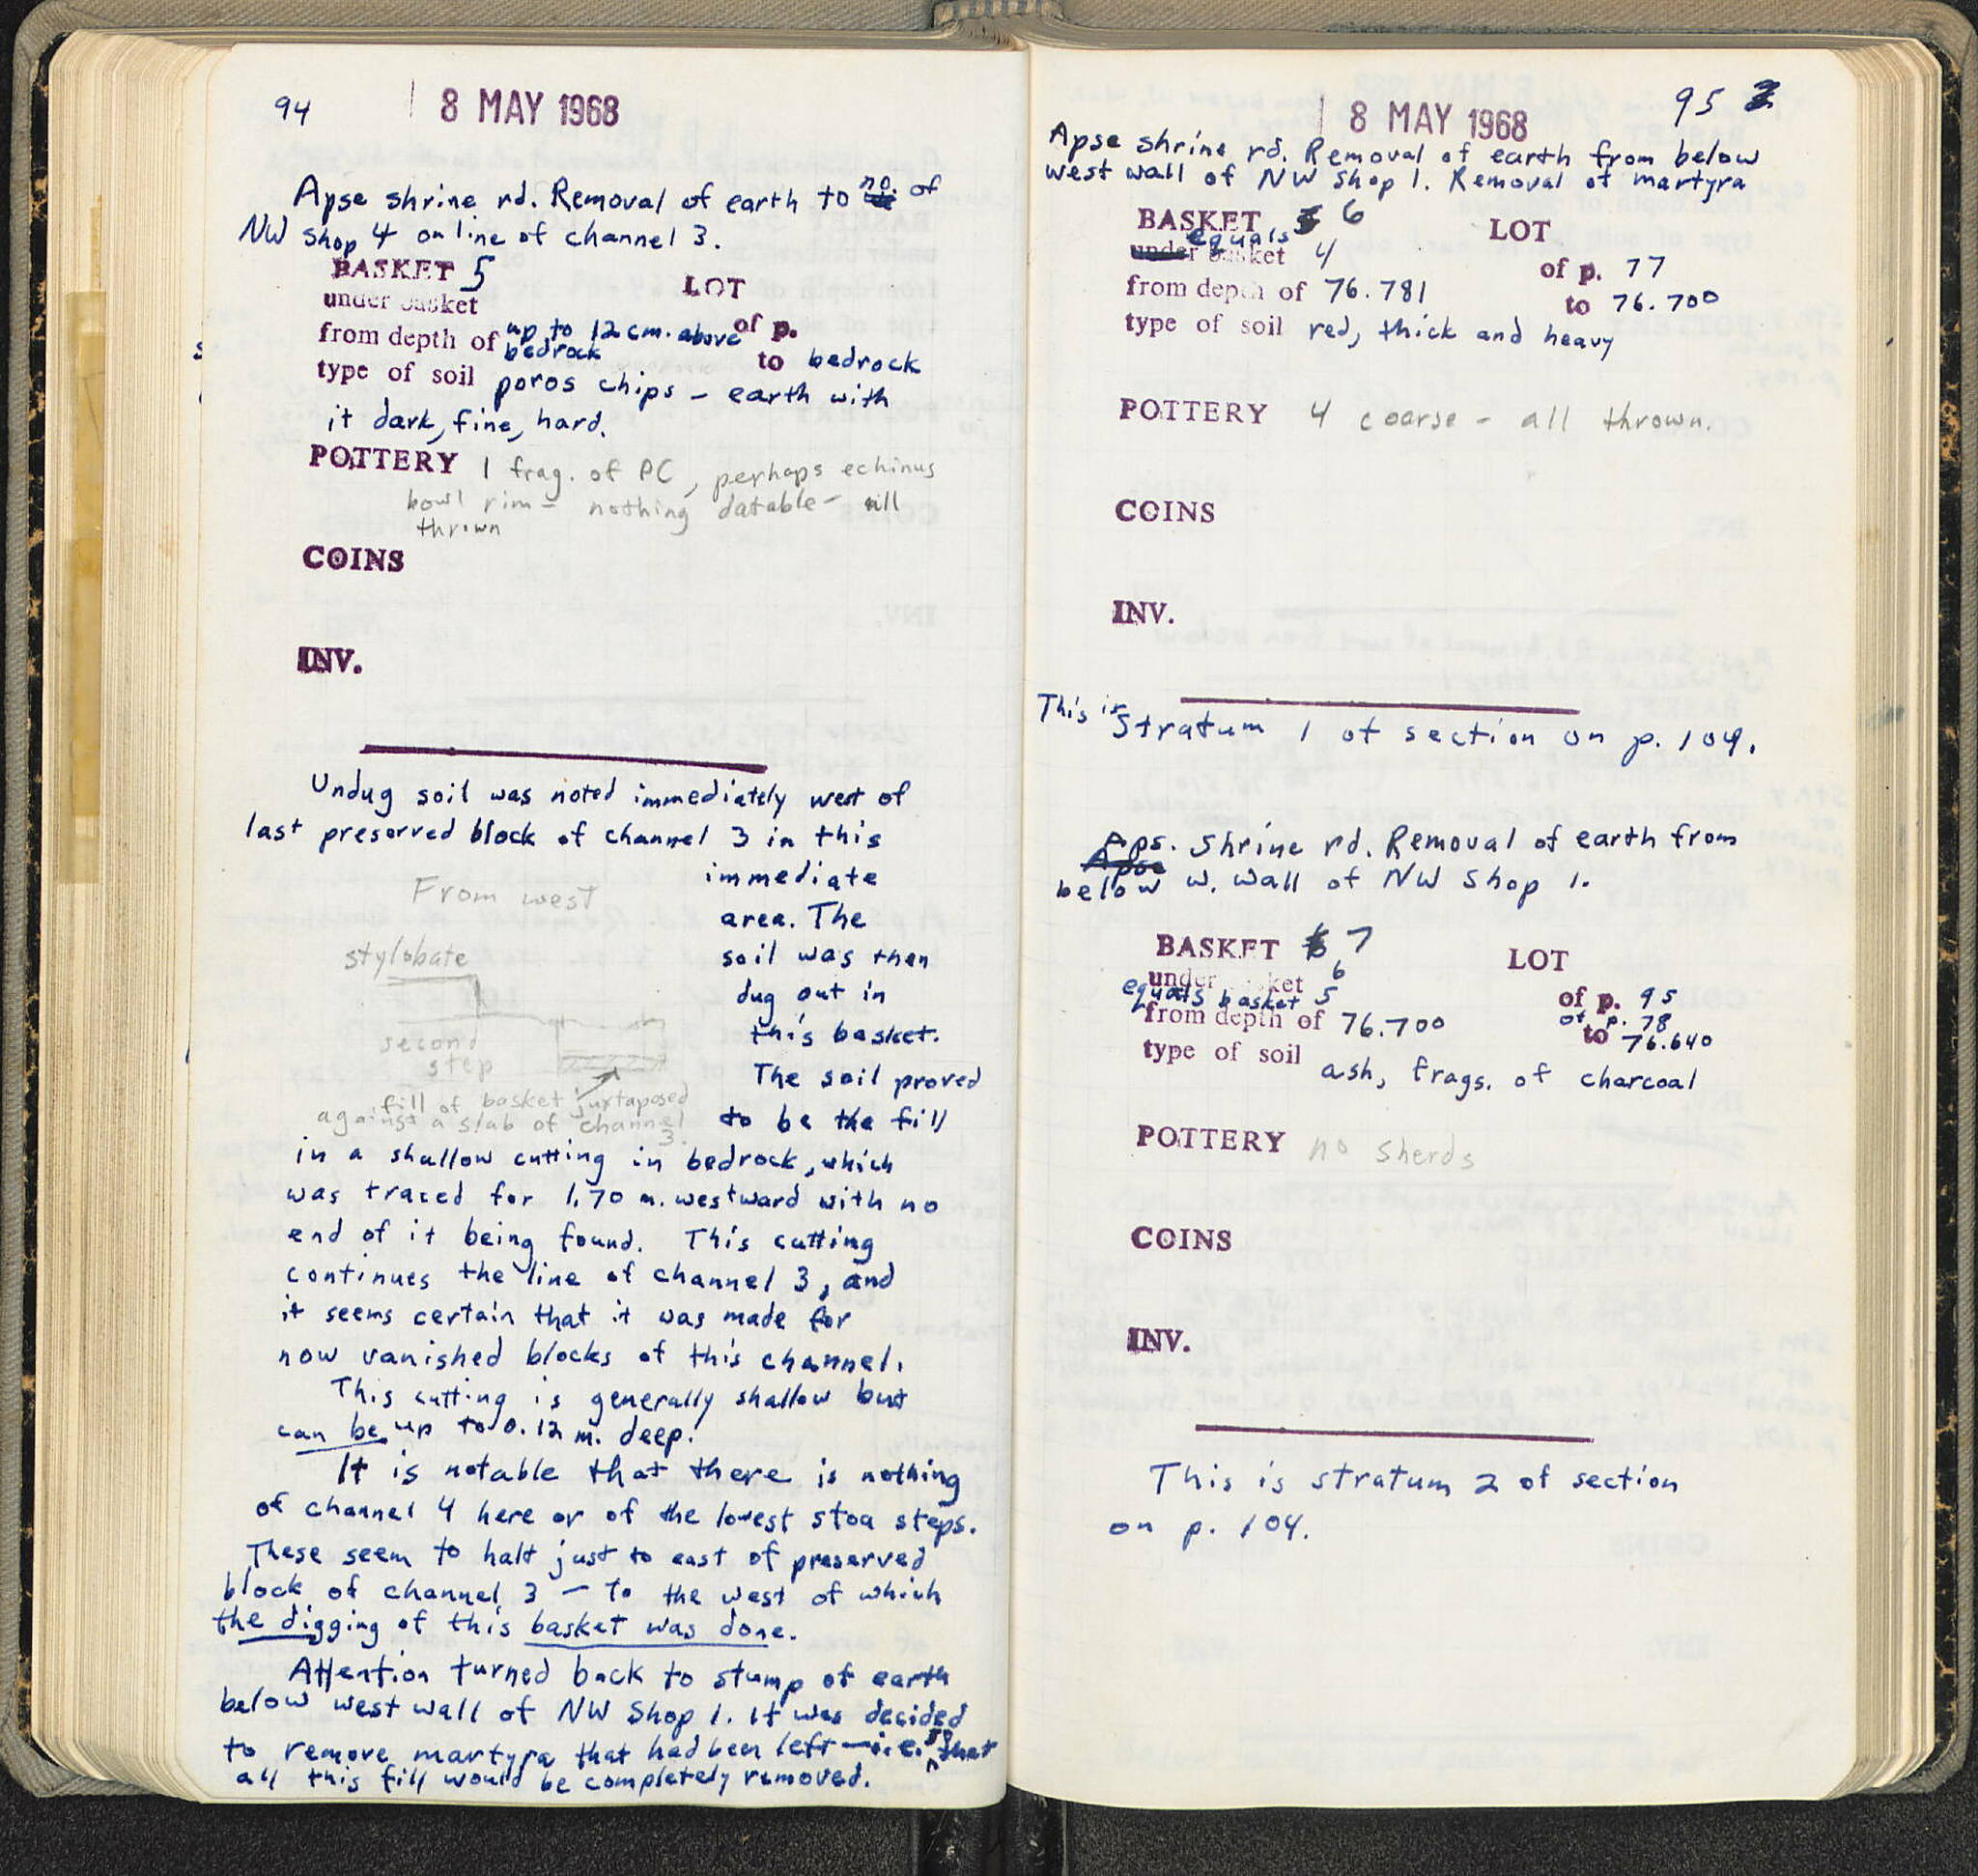 94
8 MAY 1968
Apse shrine rd. Removal of earth to no. of
NW Shop 4 on line of channel 3.
BASKET 5
LOT
under basket
from depth of up to 12 cm. above of p.
bedrock
to bedrock
type of soil poros chips – earth with
it dark, fine, hard.
POTTERY 1 frag. of PC, perhaps echinus
bowl rim – nothing datable – all
thrown
COINS
INV.
Undug soil was noted immediately west of
last preserved block of channel 3 in this
immediate
area. The
soil was then
dug out in
this basket.
The soil proved
to be the fill
From west
stylobate
second
step
fill of basket juxtaposed
against a slab of channel
3.
in a shallow cutting in bedrock, which
was traced for 1.70 m. westward with no
end of it being found. This cutting
continues the line of channel 3, and
it seems certain that it was made for
now vanished blocks of this channel.
This cutting is generally shallow but
can be up to 0.12 m. deep.
It is notable that there is nothing
of channel 4 here or of the lowest stoa steps.
These seem to halt just to east of preserved
block of channel 3 – to the west of which
the digging of this basket was done.
Attention turned back to stump of earth
below west wall of NW Shop 1. It was decided
to remove martyra that had been left – i.e. so that
all this fill would be completely removed.
95
8 MAY 1968
Apse shrine rd. Removal of earth from below
west wall of NW Shop 1. Removal of martyra
BASKET 6
LOT
equals
under basket 4
of p. 77
from depth of 76.781
to 76.700
type of soil red, thick and heavy
POTTERY 4 coarse – all thrown.
COINS
INV.
This is Stratum 1 of section on p. 104.
Aps. Shrine rd. Removal of earth from
Apse
below w. wall of NW Shop 1.
BASKET 7
LOT
under basket 6
of p. 95
equals basket 5
of p. 78
from depth of 76.700
to 76.640
type of soil ash, frags. of charcoal
POTTERY no sherds
COINS
INV.
This is stratum 2 of section
on p. 104.